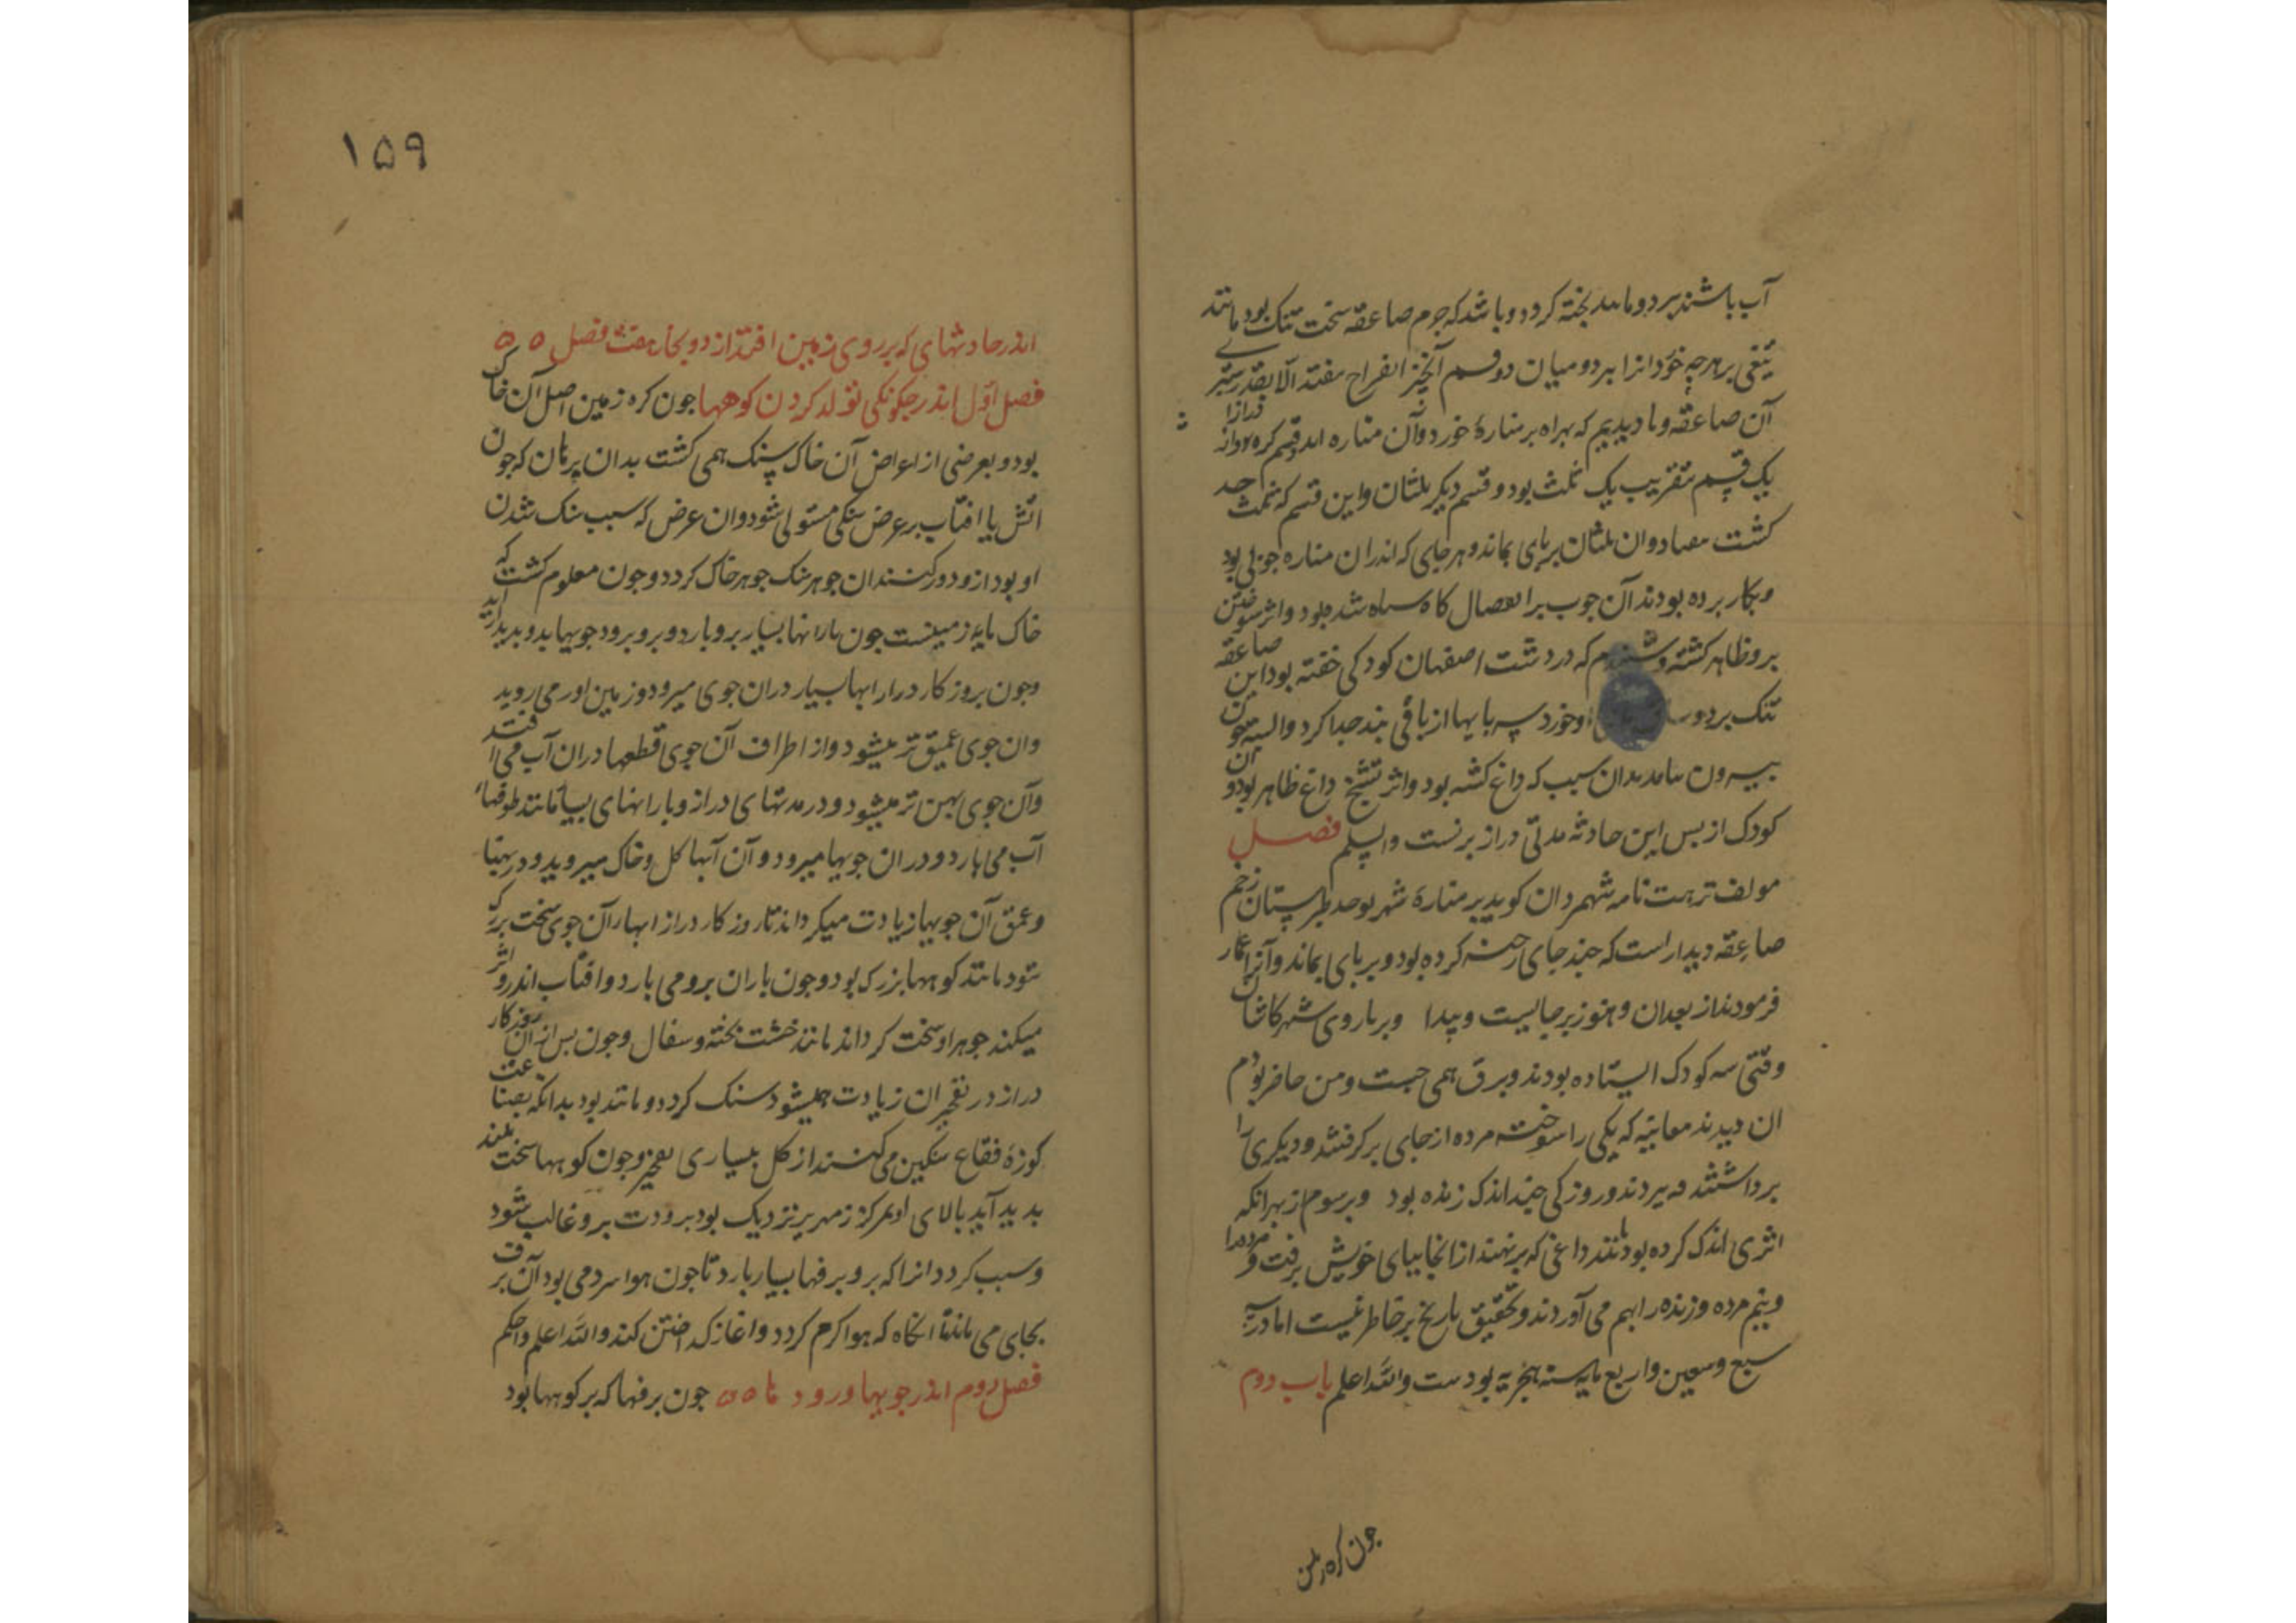 آب باشند ببرد و ماىىد پخته کردد و باشد که جرم صاعقه سخت تنک بود مانند
تیغی بر هرچه خورد انرا ببرد و میان دو قسم آنچیز انفراج نیفتد الا بقدر ستبری
آن صاعقه و ما دیدیم که بهراه بر مناره خورد و آن مناره دو قسم کرده درازا
یک قسم بتقریب یک ثلث بود و قسم دیکر ثلثان و این قسم که ثلث
کشت و ان ثلثان بر پای بماند و هر جای که اندران مناره چوبی بود
و بکار برده بودند آن چوب سیاه شده بود و اثر سوختن
برو ظاهر کشته و شنیدم که در دشت اصفهان کودکی خفته بود این صاعقه
تنک بر دو او خورد پایها از باقی بند جدا کرد و البته خون
بیرون نیامد بدان سبب که داغ کشته بود و اثر تشنج داغ ظاهر بود و آن
کودک از پس این حادثه مدتی دراز بزیست فصل
مولف نزهت نامه شهمردان کوید بر مناره شهر طبرستان زخم
صاعقه دیدار است که چند جای رخنه کرده بود و بر پای بماند و آنرا عمار
فرمودند از بعد ان و هنوز بر جالیست و پیدا و بر باروی شهر کاشان
وقتی سه کودک ایستاده بودند و برق همی جست و من حاضر بودم
ان دیدند معاینه که یکی را سوخته مرده از جای برکرفتند و دیکری را
برداشتند و ببردند و روزکی چند اندک زنده بود و بر سوم از بهر انکه
اثری اندک کرده بود مانند داغی که برنهند از انجا بپای خویش برفت و مرده را
و نیم مرده و زنده را بهم می آوردند و تحقیق تاریخ بر خاطر نیست اما در
سبع و سبعین و اربع مایه سنه هجریه بودست والله اعلم باب دوم
جون کره زمین
۱۵۹
اندر حادثهای که بر روی زمین افتد از دو بخار هفت فصل
فصل اول اندر جکونکی تولد کردن کوهها جون کره زمین اصل آن خاک
بود و بعرضی از اعراض آن خاک سنک همی کشت بدان برهان که جون
اتش یا افتاب بر عرض سنکی مستولی شود و ان عرض که سبب سنک شدن
او بود ازو دور کنند ان جوهر سنک جوهر خاک کردد و جون معلوم کشت که
خاک مایه زمینست جون بارانها بسیار برو بارد و برو برود جویها بدو پدید اید
و جون بروزکار دراز ابها بسیار دران جوی میرود و زمین اور می روبد
وان جوی عمیق تر میشود و از اطراف آن جوی قطعها دران آب می افتد
وآن جوی پهن تر میشود و در مدتهای دراز و بارانهای بسیار مانند طوفانها
آب می بارد و دران جویها میرود و آن آبها کل و خاک میروبد و در پهنا
و عمق آن جویها زیادت میکرداند تا روزکار دراز ابهار آن جوی سخت بزرک
شود مانند کوهها بزرک بود و جون باران برو می بارد و افتاب اندرو اثر
میکند جوهر او سخت کرداند مانند خشت پخته و سفال و جون پس از ان روزکار
دراز در تفجیر ان زیادت همیشود سنک کردد و مانند بود بدانکه بصناعت
کوزه فقاع سنکین می کنند از کل بسیاری تفجیر و جون کوهها سخت بلند
پدید آید بالای او بمرکز زمهریر نزدیک بود برودت برو غالب شود
و سبب کردد انرا که برو برفها بسیار بارد تا جون هوا سرد می بود آن برف
بجای می ماند تا انکاه که هوا کرم کردد و اغاز کداختن کند والله اعلم و احکم
فصل دوم اندر جویها و رودها جون برفها که بر کوهها بود